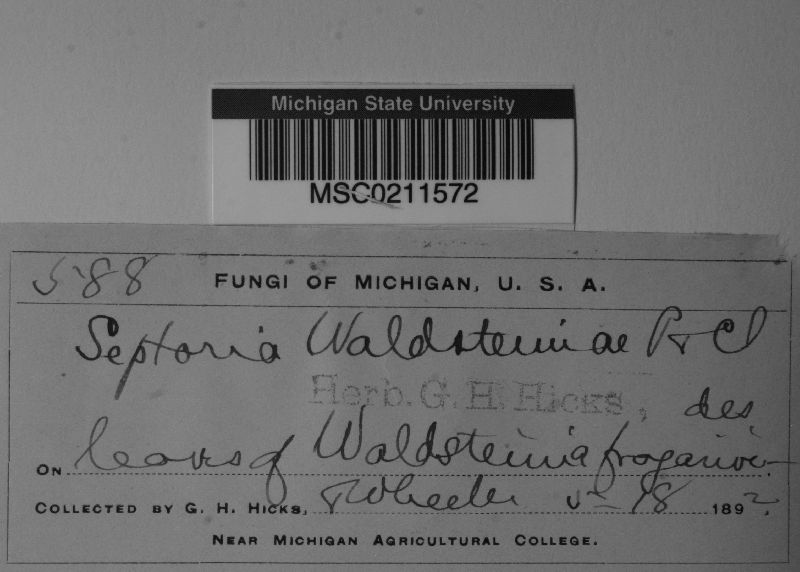 Michigan State University
MSC0211572
588 FUNGI OF MICHIGAN, U. S. A.
Septoria Waldsteiniae P & Cl
Herb. G. H. Hicks,
ON leaves of Waldsteinia fragarioi- des
COLLECTED BY G. H. HICKS, Wheeler 5-18 1892.
NEAR MICHIGAN AGRICULTURAL COLLEGE.